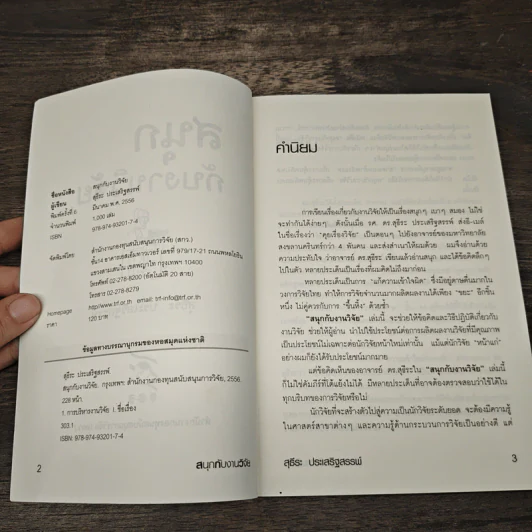 ชื่อหนังสือ สนุกกับงานวิจัย
ผู้เขียน สุธีระ ประเสริฐสรรพ์
พิมพ์ครั้งที่ 6 มีนาคม พ.ศ. 2556
จำนวนพิมพ์ 1,000 เล่ม
ISBN 978-974-93201-7-4
จัดพิมพ์โดย สำนักงานกองทุนสนับสนุนการวิจัย (สกว.)
ชั้น14 อาคารเอสเอ็มทาวเวอร์ เลขที่ 979/17-21 ถนนพหลโยธิน
แขวงสามเสนใน เขตพญาไท กรุงเทพฯ 10400
โทรศัพท์ 02-278-8200 (อัตโนมัติ 20 สาย)
โทรสาร 02-278-8279
Homepage http://www.trf.or.th email: trf-info@trf.or.th
ราคา 120 บาท
ข้อมูลทางบรรณานุกรมของหอสมุดแห่งชาติ
สุธีระ ประเสริฐสรรพ์
สนุกกับงานวิจัย. กรุงเทพฯ: สำนักงานกองทุนสนับสนุนการวิจัย, 2556.
226 หน้า
1. การบริหารงานวิจัย I. ชื่อเรื่อง
303.1
ISBN: 978-974-93201-7-4
2 สนุกกับงานวิจัย
คำนิยม
การเขียนเรื่องเกี่ยวกับงานวิจัยให้เป็นเรื่องสนุกๆ เบาๆ สมอง ไม่ใช่
จะทำกันได้ง่ายๆ ดังนั้นเมื่อ รศ. ดร.สุธีระ ประเสริฐสรรพ์ ส่งอี-เมล์
ในชื่อเรื่องว่า "คุยเรื่องวิจัย" เป็นตอนๆ ไปยังอาจารย์ของมหาวิทยาลัย
สงขลานครินทร์กว่า 4 พันคน และส่งสำเนาให้ผมด้วย ผมจึงอ่านด้วย
ความประทับใจ ว่าอาจารย์ ดร.สุธีระ เขียนแล้วอ่านสนุก และได้ข้อคิดลึกๆ
ไปในตัว หลายประเด็นเป็นเรื่องที่ผมคิดไม่ถึงมาก่อน
หลายประเด็นเป็นการ "แก้ความเข้าใจผิด" ซึ่งมีอยู่ดาษดื่นมากใน
วงการวิจัยไทย ทำให้การวิจัยจำนวนมากผลิตผลงานได้เพียง "ขยะ" อีกชิ้น
หนึ่ง ไม่คู่ควรกับการ "ขึ้นหิ้ง" ด้วยซ้ำ
"สนุกกับงานวิจัย" เล่มนี้ จะช่วยให้ข้อคิดและวิธีปฏิบัติเกี่ยวกับ
งานวิจัย ช่วยให้ผู้อ่าน นำไปใช้ประโยชน์ต่อการผลิตผลงานวิจัยที่มีคุณภาพ
เป็นประโยชน์ไม่เฉพาะต่อนักวิจัยหน้าใหม่เท่านั้น แม้แต่นักวิจัย "หน้าแก่"
อย่างผมก็ยังได้รับประโยชน์มากมาย
แต่ข้อคิดเห็นของอาจารย์ ดร.สุธีระใน "สนุกกับงานวิจัย" เล่มนี้
ก็ไม่ใช่คัมภีร์ที่โต้แย้งไม่ได้ มีหลายประเด็นที่อาจต้องตรวจสอบว่าใช้ได้ใน
ทุกบริบทของการวิจัยหรือไม่
นักวิจัยที่จะสร้างตัวไปสู่ความเป็นนักวิจัยระดับยอด จะต้องมีความรู้
ในศาสตร์สาขาต่างๆ และความรู้ด้านกระบวนการวิจัยเป็นอย่างดี แต่
สุธีระ ประเสริฐสรรพ์ 3